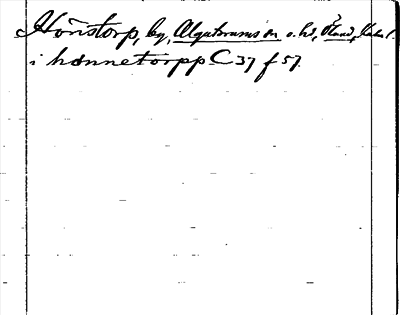 Hönstorp, by, Algutsrums sn o. hd, Öland, Kalm l.
i hønnetorpp C 37 f 57.